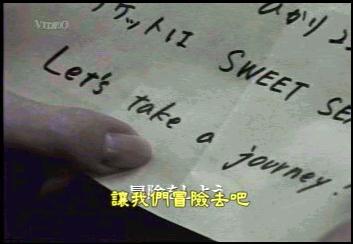 VIDEO
ひかり 22
ケットは SWEET SE
Let's take a journey!
冒険をしよう
讓我們冒險去吧